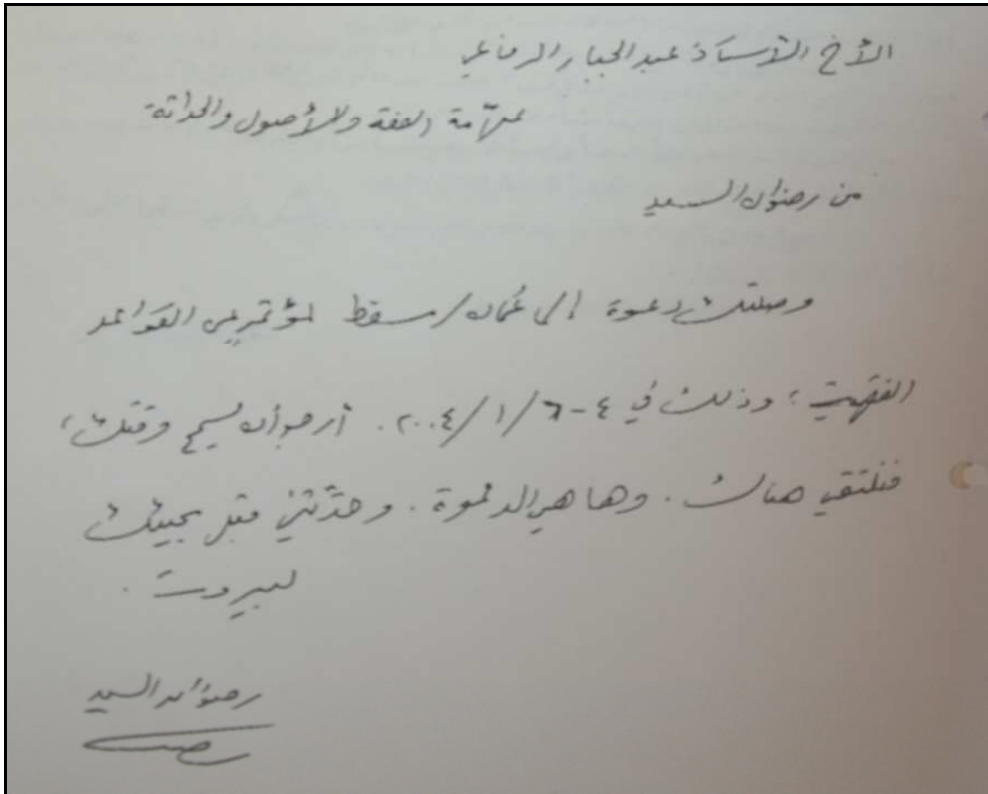 الأخ الأستاذ عبد الجبار الرفاعي
علاّمة الفقه والأصول والحداثة
من رضوان السيد
وصلتك دعوة إلى عُمان/مسقط لمؤتمرٍ عن القواعد
الفقهية، وذلك في ٤-٦/١/٢٠٠٤. أرجو أن يسمح وقتك،
فنلتقي هناك. وها هي الدعوة. وحدّثني قبل مجيئك
لبيروت.
رضوان السيد